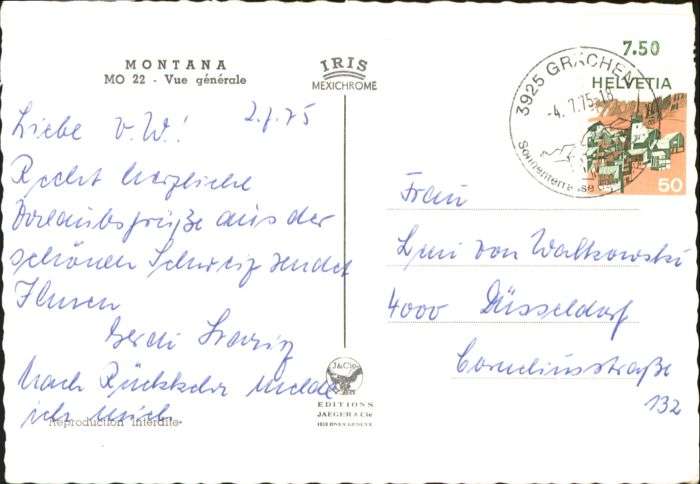 MONTANA
MO 22 - Vue générale
IRIS
MEXICHROME
7.50
HELVETIA
50
3925 GRÄCHEN
-4.7.75-18
Sonnenterrasse
2.7.75
Liebe v. W!
Recht herzliche
Urlaubsgrüße aus der
schönen Schweiz sendet
Ihnen
Gerdi
Nach Rückkehr melde
ich mich.
Reproduction interdite
J&Cie
EDITIONS
JAEGER & Cie
GENEVE
Frau
Leni von Walkowski
4000 Düsseldorf
Corneliusstraße
132